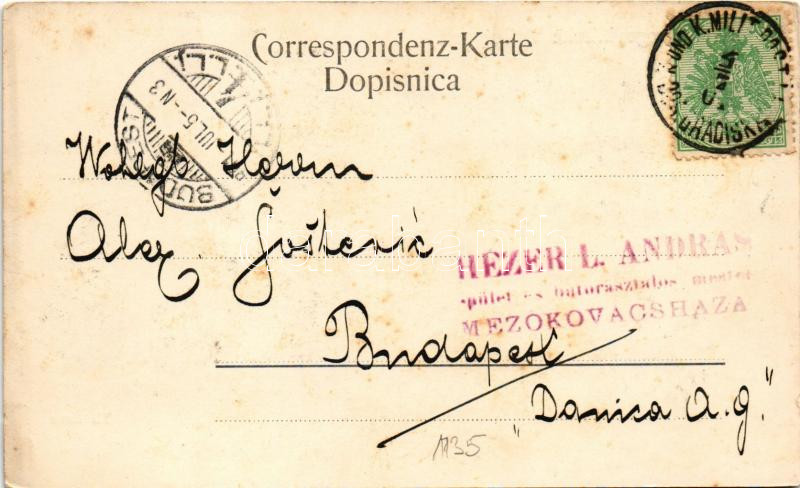 Correspondenz-Karte
Dopisnica
K. UND K. MILIT. POST
GRADISKA
BUDAPEST
Herrn
Alex. Joštević
HEZER L. ANDRAS
épület és bútorasztalos mester
MEZOKOVACSHAZA
Budapest
"Danica A.G."
1135